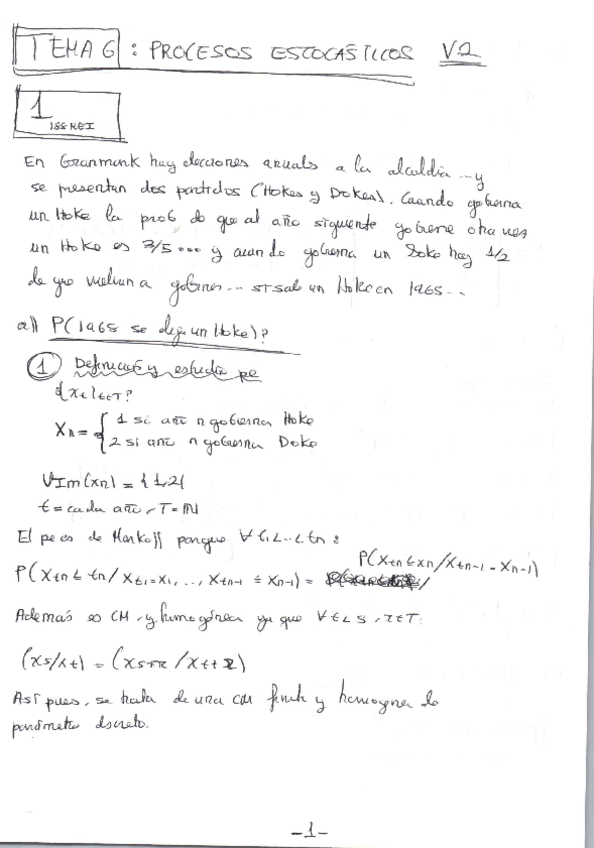 TEMA 6 : PROCESOS ESTOCÁSTICOS V2
1
En Granmunk hay elecciones anuals a la alcaldía ... y
se presentan dos partidos (Hokes y Dokes). Cuando gobierna
un Hoke la prob de que al año siguiente gobierne otra vez
un Hoke es 3/5 ... y cuando gobierna un Doke hay 1/2
de que vuelvan a gobernar ... si sale un Hoke en 1965 ...
a)) P(1965 se elija un Hoke)?
1 Definición y estudio pe
{xt}t∈T?
Xn = { 1 si año n gobierna Hoke
2 si año n gobierna Doke
Im(xn) = {1,2}
t = cada año, T = ℕ
El pe es de Markov porque ∀ t1<..<tn :
P(Xtn ≤ xn / Xtn-1 = Xn-1)
P(Xtn ≤ tn / Xt1 = x1, ..., Xtn-1 = xn-1) =
Además es CM y homogénea ya que ∀ t<s, r∈T:
(Xs/Xt) = (Xs+r / Xt+r)
Así pues, se trata de una CM finita y homogenea de
parámetro discreto.
-1-